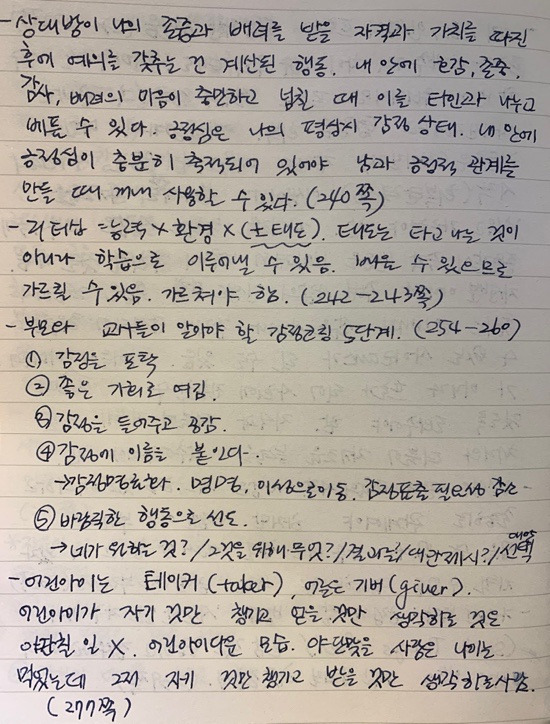 - 상대방이 나의 존중과 배려를 받을 자격과 가치를 따진
후에 예의를 갖추는 건 계산된 행동. 내 안에 호감, 존중,
감사, 배려의 마음이 충만하고 넘칠 때 이를 타인과 나누고
베풀 수 있다. 긍정심은 나의 평상시 감정 상태. 내 안에
긍정심이 충분히 축적되어 있어야 남과 긍정적 관계를
만들 때 꺼내 사용할 수 있다. (240쪽)
- 리더십 = 능력 × 환경 × (± 태도). 태도는 타고 나는 것이
아니라 학습으로 이루어낼 수 있음. 배울 수 있으므로
가르칠 수 있음. 가르쳐야 함. (242-243쪽)
- 부모와 교사들이 알아야 할 감정코칭 5단계. (254-260)
① 감정을 포착
② 좋은 기회로 여김
③ 감정을 들어주고 공감.
④ 감정에 이름을 붙인다
→ 감정명료화. 명명, 이성으로 이동. 감정표출 필요성 감소
⑤ 바람직한 행동으로 선도.
→ 네가 원하는 것? / 그것을 위해 무엇? / 결과는? / 대안제시? / 선택
- 어린아이는 테이커 (taker), 어른은 기버 (giver).
어린아이가 자기 것만 챙기고 받을 것만 생각하는 것은
야단칠 일 X. 어린아이다운 모습. 야단맞을 사람은 나이는
먹었는데 그저 자기 것만 챙기고 받을 것만 생각하는 사람.
(277쪽)